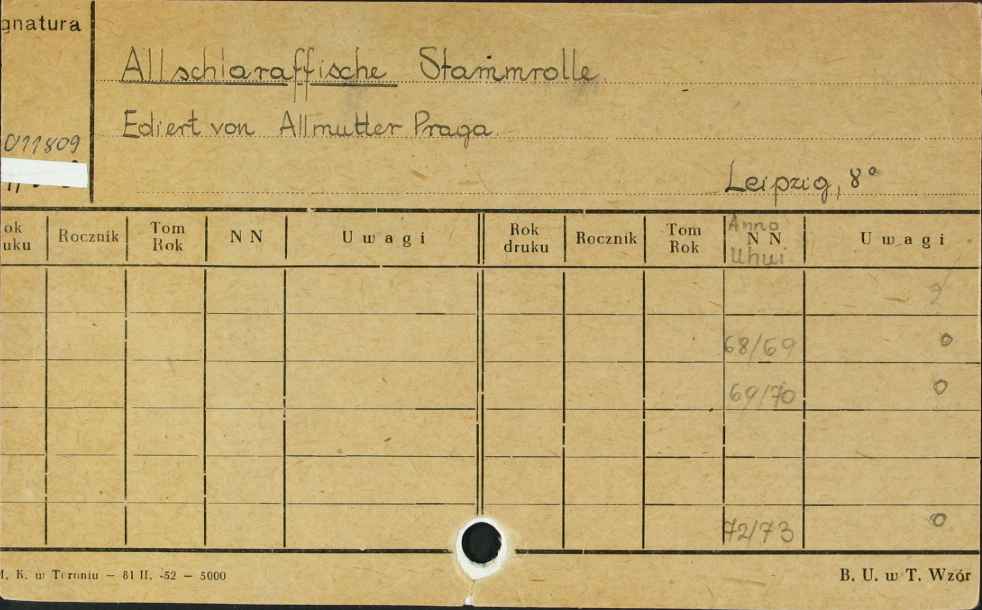 gnatura
Allschlaraffische Stammrolle
Ediert von Allmutter Praga
011809
Leipzig, 8°
ok uku Rocznik Tom Rok NN Uwagi Rok druku Rocznik Tom Rok NN Anno Uhui Uwagi
2
68/69 0
69/70 0
72/73 0
M. K. w Toruniu — 81 II. -52 — 5000 B. U. w T. Wzór